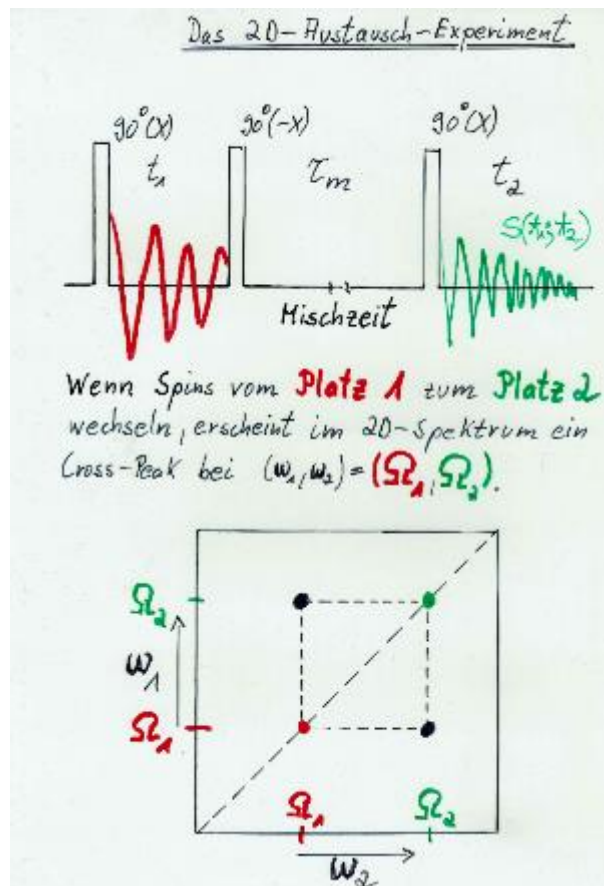 Das 2D-Austausch-Experiment
90°(X) 90°(-X) 90°(X)
t₁ τₘ t₂
S(t₁; t₂)
Mischzeit
Wenn Spins vom Platz 1 zum Platz 2
wechseln, erscheint im 2D-Spektrum ein
Cross-Peak bei (ω₁, ω₂) = (Ω₁, Ω₂).
Ω₂
ω₁
Ω₁
Ω₁ Ω₂
ω₂